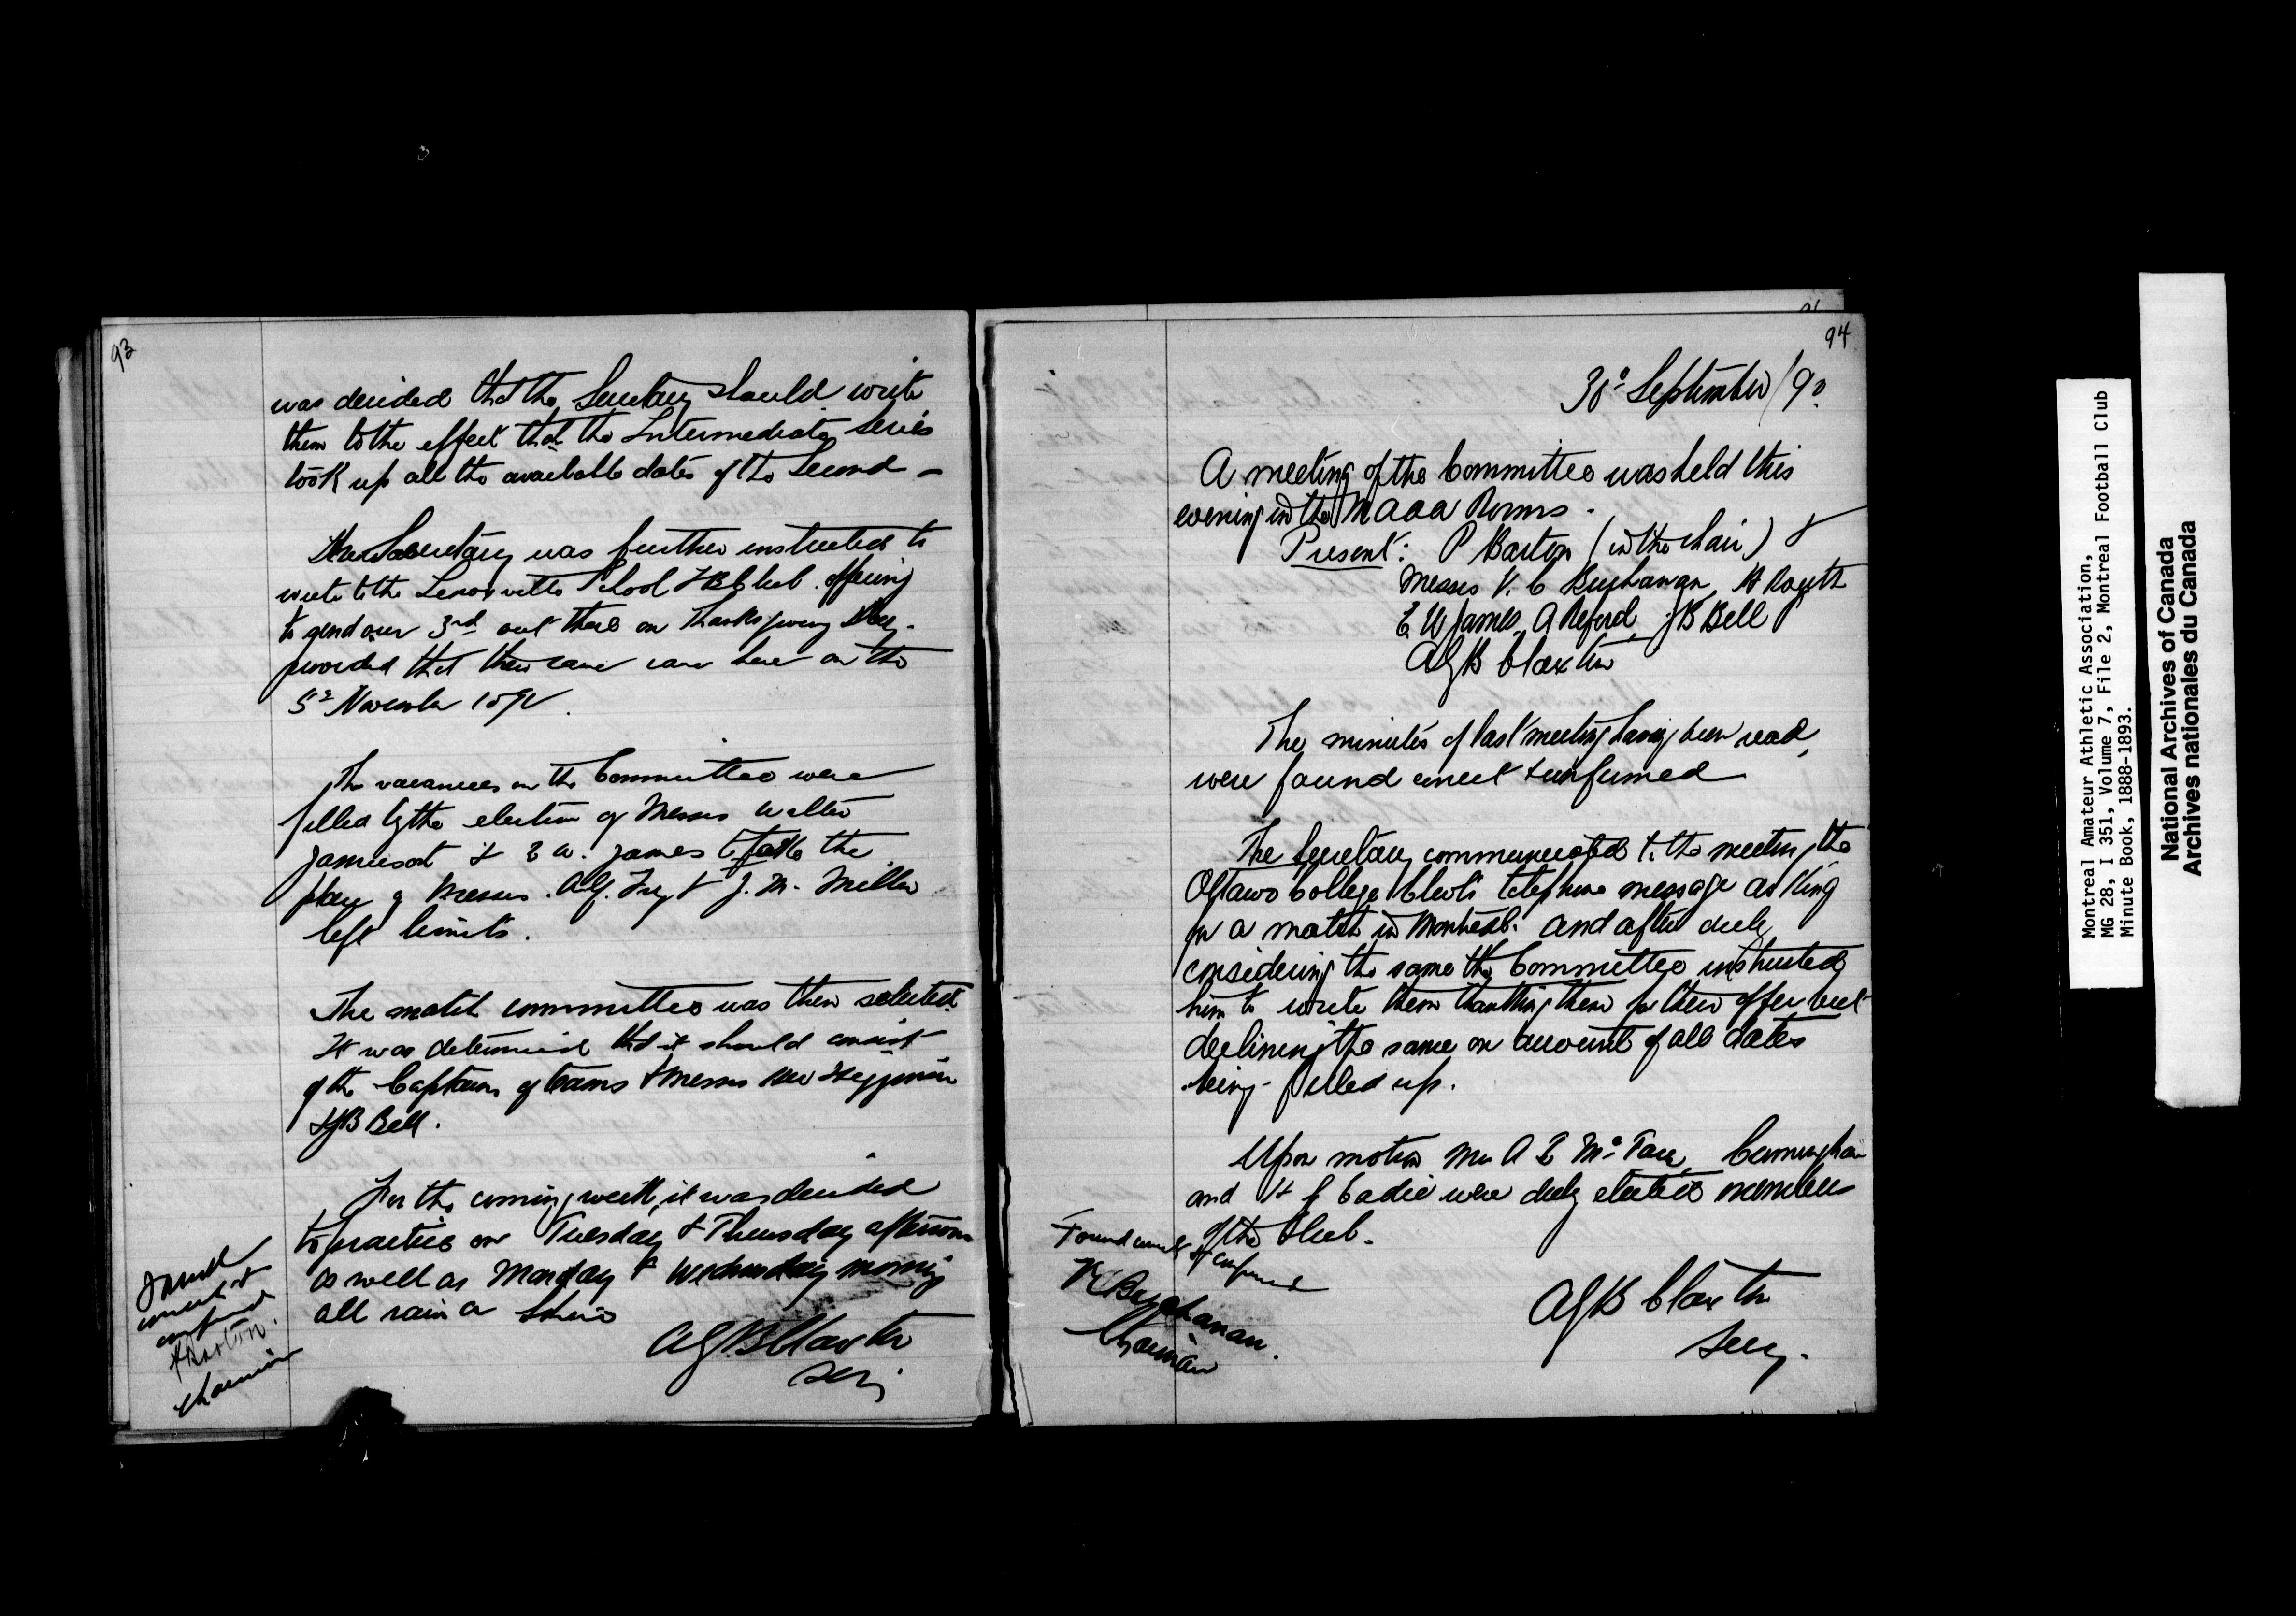 93
was decided that the Secretary should write
them to the effect that the Intermediate Series
took up all the available dates of the Second -
The Secretary was further instructed to
write to the Lennoxville School FB Club offering
to send our 3rd out there on Thanksgiving Day.
provided that they came here on the
5th November
The vacancies on the Committee were
filled by the election of Messrs Walter
Jamieson & E W. James to take the
place of Messrs. A.G. Fry & J. M. Miller
left limits.
The match committee was then selected.
It was determined that it should consist
of the Captains of teams & Messrs
& JB Bell.
For the coming week, it was decided
to practice on Tuesday & Thursday afternoon
as well as Monday & Wednesday morning
all rain or shine
AGB Claxton
Secy
Found
correct &
confirmed
P Barton.
Chairman
94
30th September /90
A meeting of the Committee was held this
evening in the MAAA Rooms.
Present: P Barton (in the chair) &
Messrs V. C Buchanan, H Routh
E W James, A Reford, JB Bell
AGB Claxton
The minutes of last meeting having been read,
were found correct & confirmed
The Secretary communicated to the meeting the
Ottawa College Club's telephone message asking
for a match in Montreal. and after duly
considering the same the Committee instructed
him to write them thanking them for their offer but
declining the same on account of all dates
being filled up.
Upon motion Mr A E Cunningham
and H J Eadie were duly elected members
of the Club.
Found correct & confirmed
V C Buchanan.
Chairman
AGB Claxton
Secy.
Montreal Amateur Athletic Association,
MG 28, I 351, Volume 7, File 2, Montreal Football Club
Minute Book, 1888-1893.
National Archives of Canada
Archives nationales du Canada